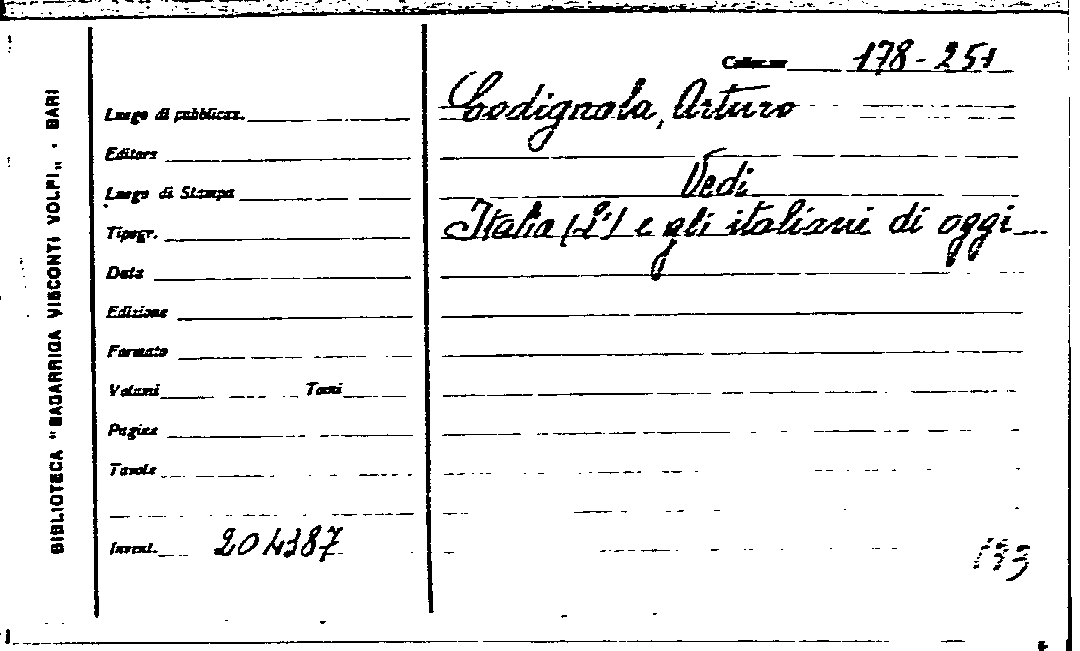 BIBLIOTECA "SAGARRIGA VISCONTI VOLPI" - BARI
Collocaz. 178-251
Luogo di pubblicaz.
Editore
Luogo di Stampa
Tipogr.
Data
Edizione
Formato
Volumi Tomi
Pagine
Tavole
Invent. 204387
Codignola, Arturo
Vedi
Italia (L') e gli italiani di oggi...